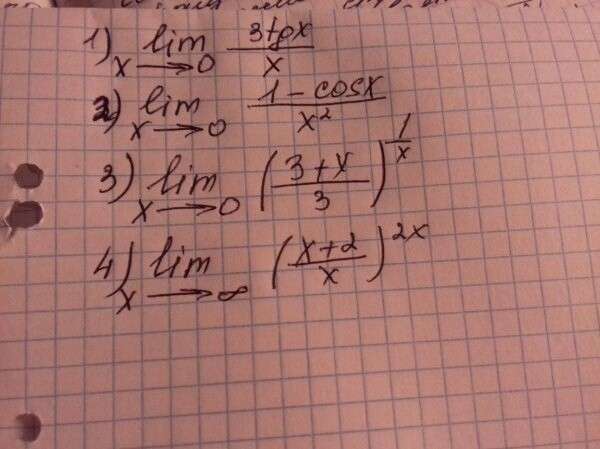 1) lim x→0 3tgx/x
2) lim x→0 (1-cosx)/x²
3) lim x→0 ((3+x)/3)^(1/x)
4) lim x→∞ ((x+2)/x)^(2x)